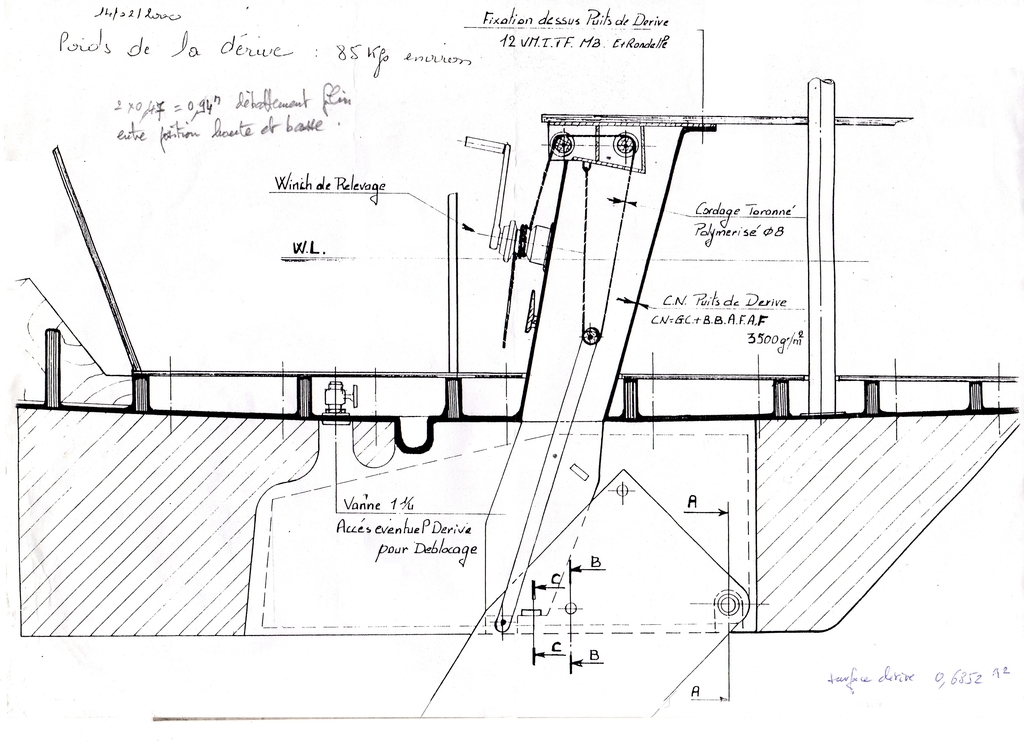 14/02/2000
Poids de la dérive : 85 Kgs environ
2 x 0,47 = 0,94m débattement filin
entre position haute et basse.
Fixation dessus Puits de Derive
12 VM.T.TF. M8. Et Rondelle
Winch de Relevage
W.L.
Cordage Toronné
Polymerisé Ø8
C.N. Puits de Derive
CN=G.C.+B.B.A.F.A.F
3500gr/m²
Vanne 1"¼
Accés eventuel Derive
pour Deblocage
A
B
C
C
B
A
surface dérive 0,6852 m²